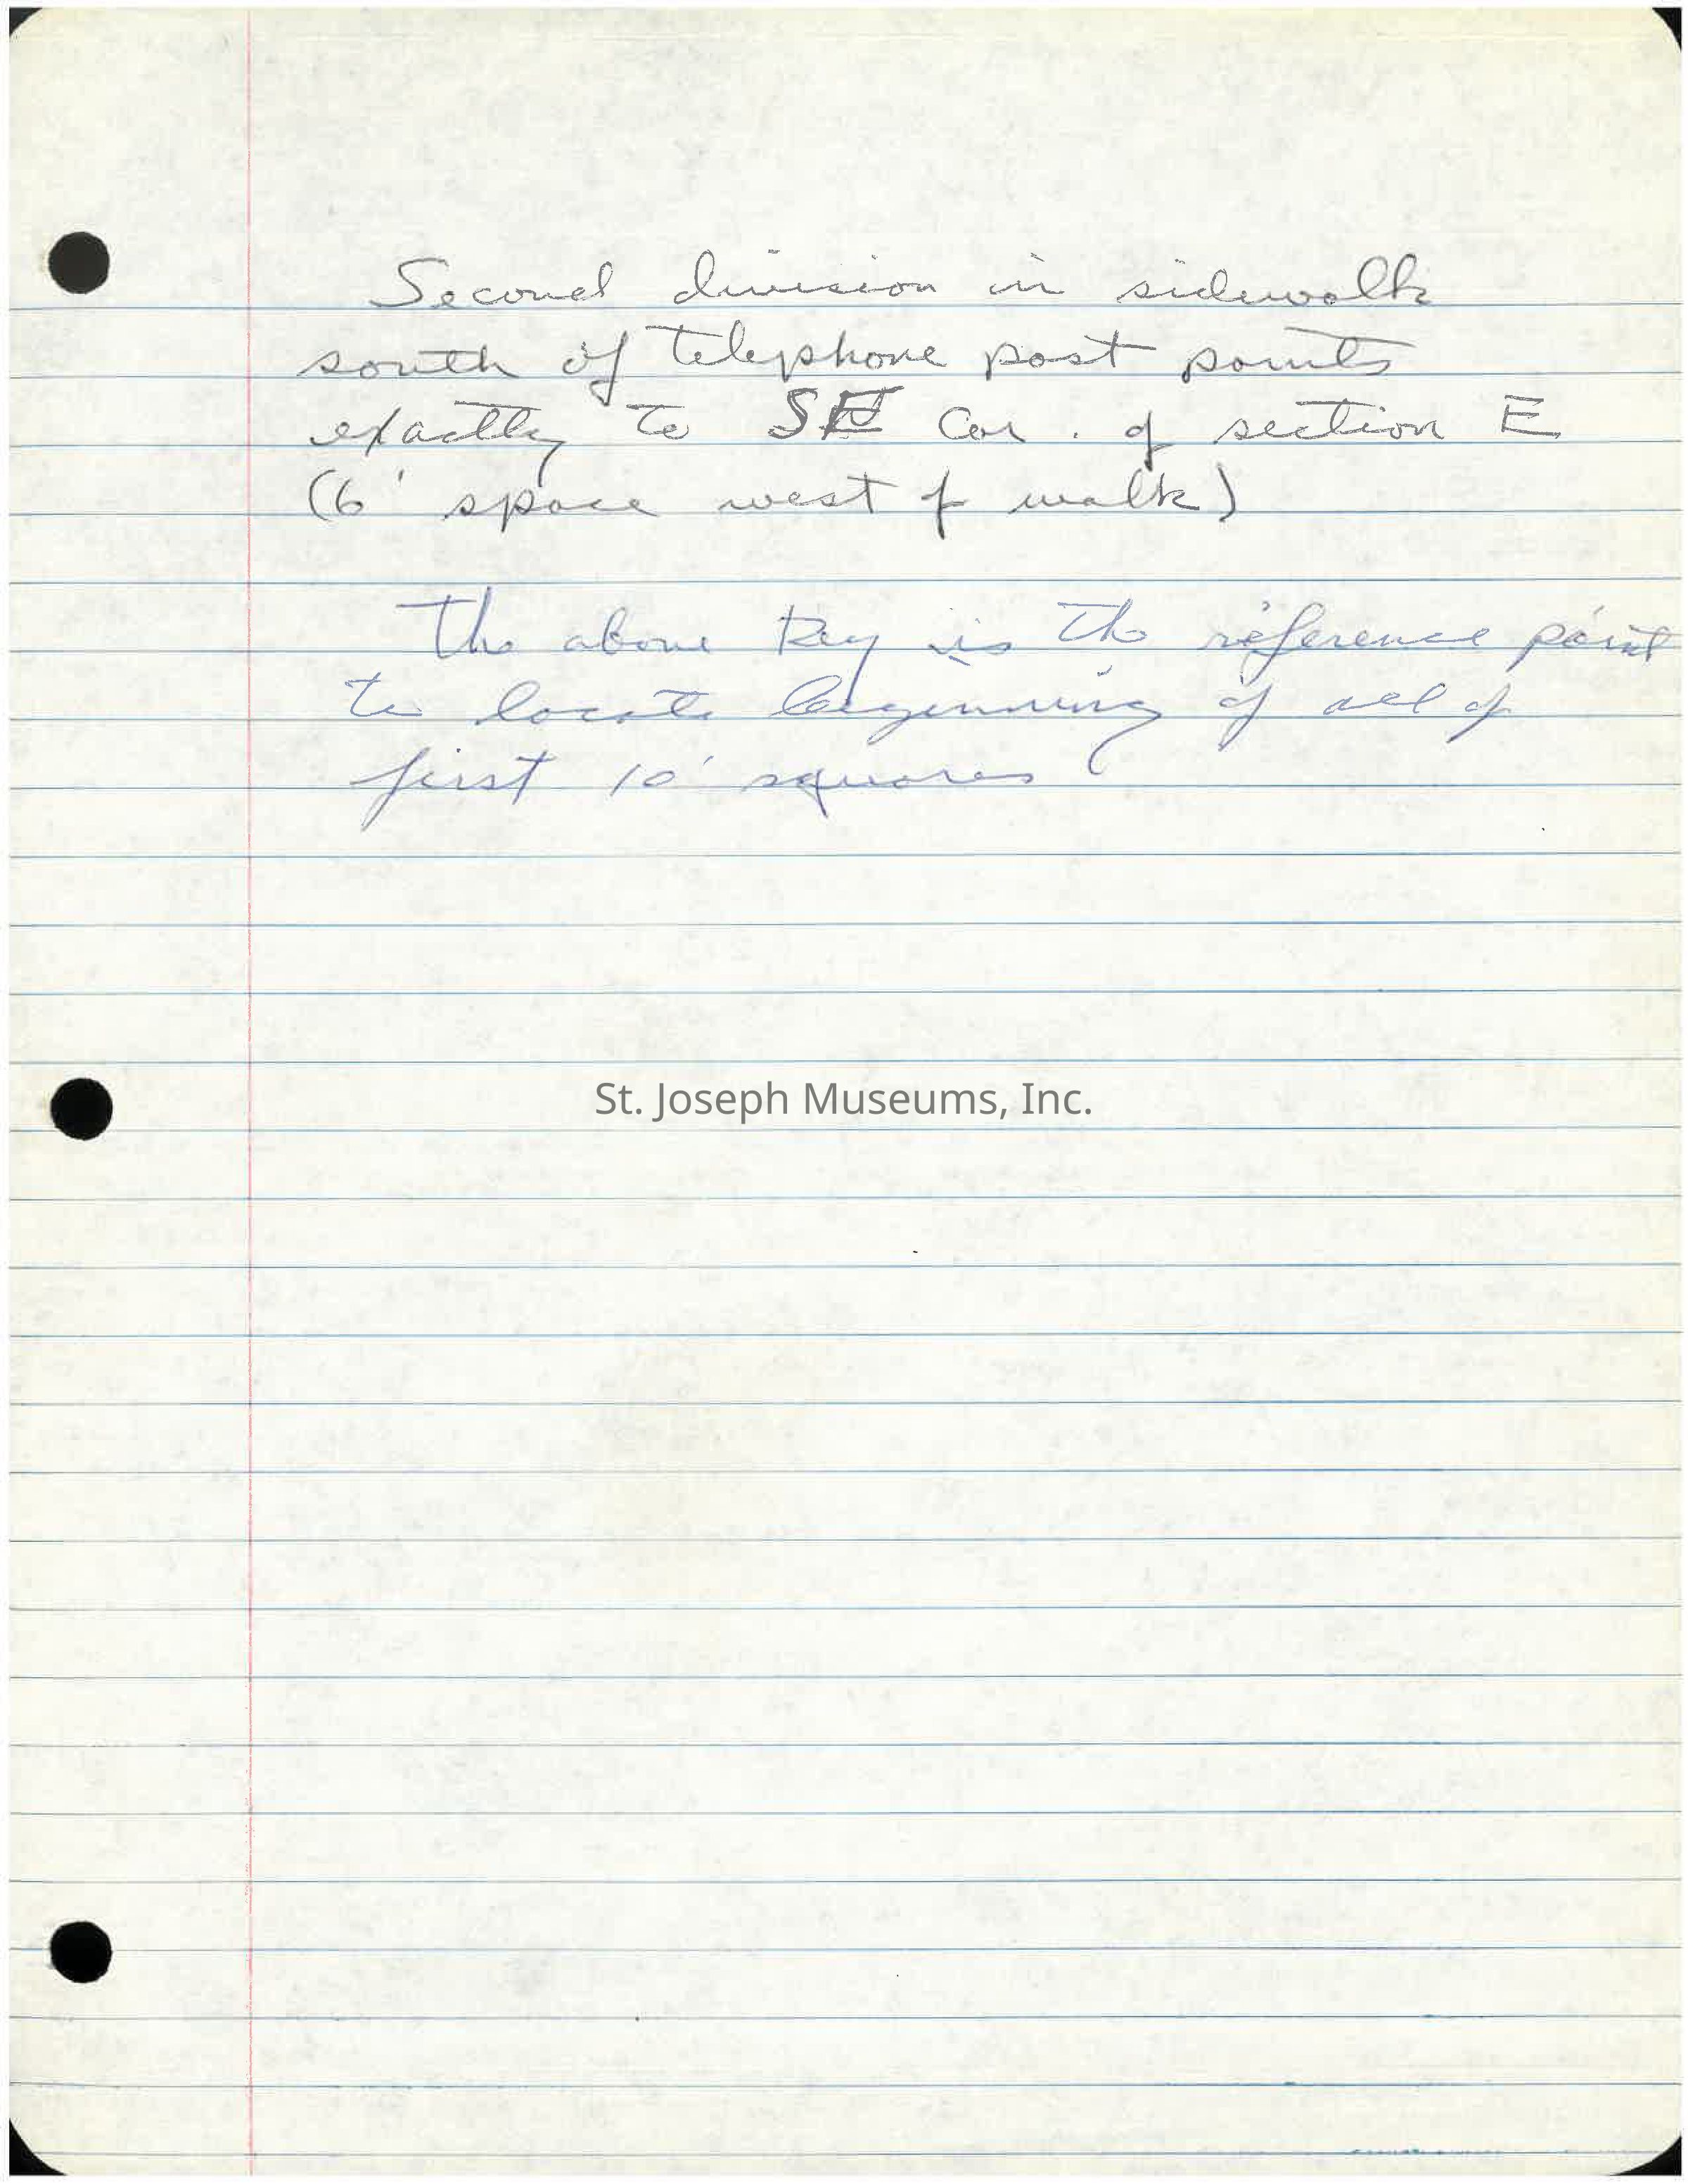 Second division in sidewalk
south of telephone post points
exactly to SE Cor. of section E
(6' space west of walk)
The above Key is the reference point
to locate beginning of all of
first 10' squares
St. Joseph Museums, Inc.